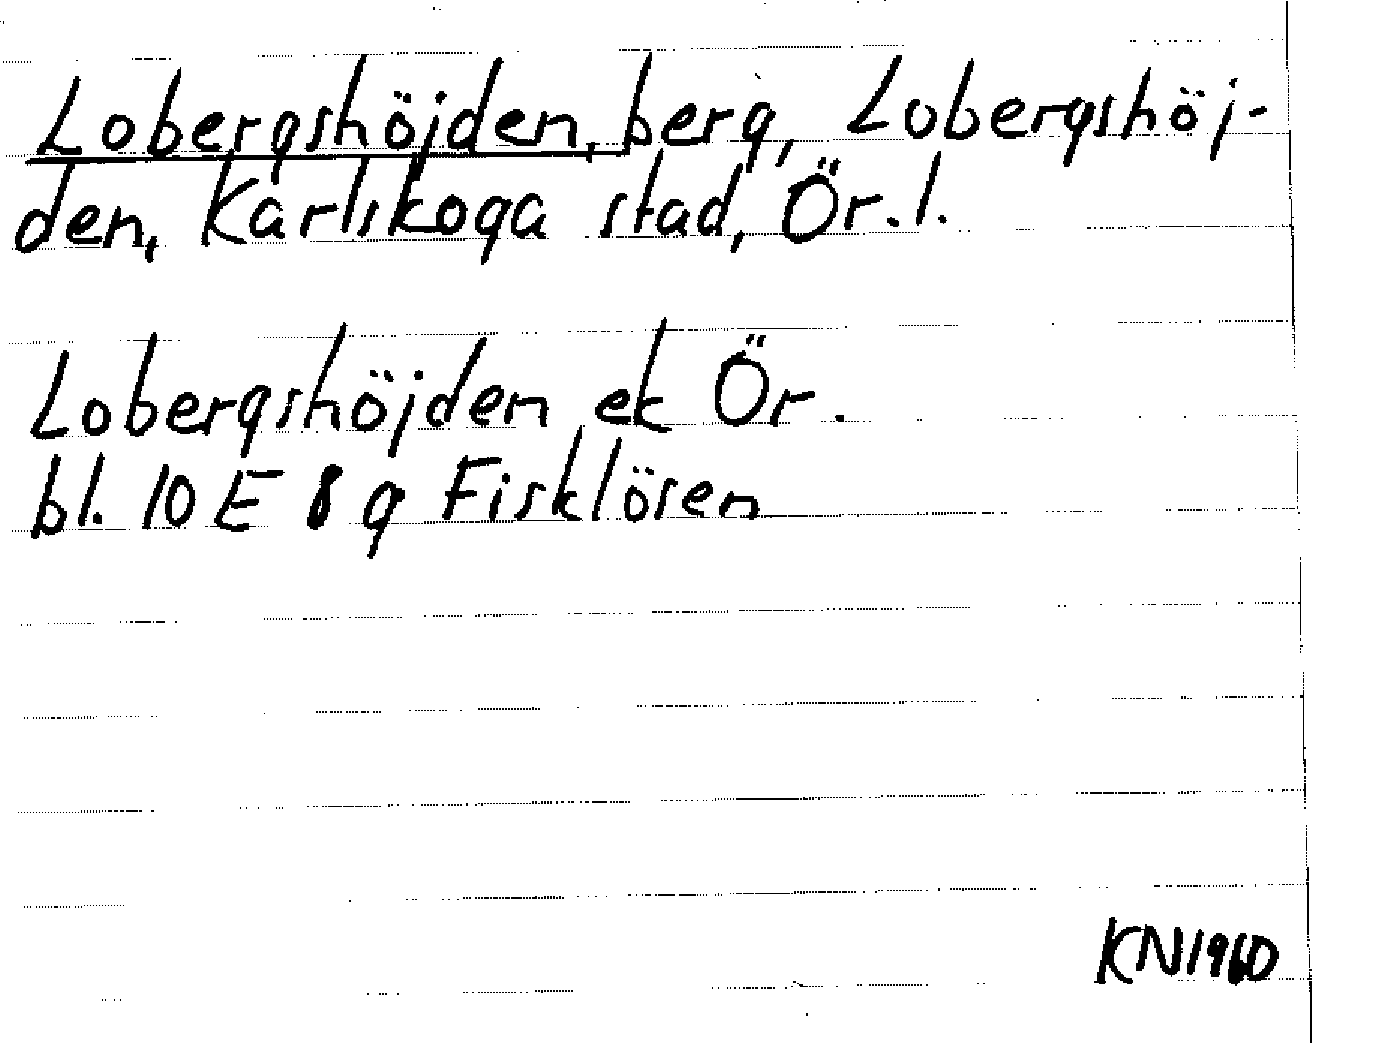 Lobergshöjden, berg, Lobergshöj-
den, Karlskoga stad, Ör.l.
Lobergshöjden ek Ör.
bl. 10 E 8 g Fisklösen
KN1960